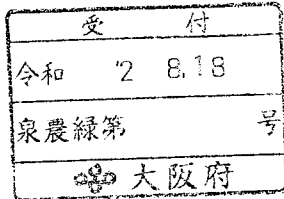 受 付
令和 '2 8.18
泉農緑第 号
大阪府